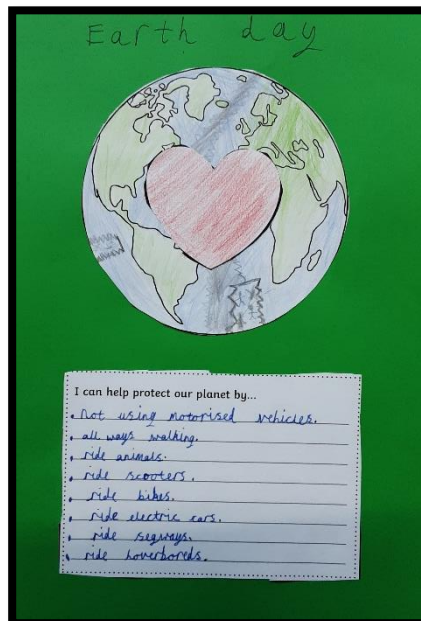 Earth day
I can help protect our planet by...
• not using motorised vehicles.
• all ways walking.
• ride animals.
• ride scooters.
• ride bikes.
• ride electric cars.
• ride segways.
• ride hoverbords.